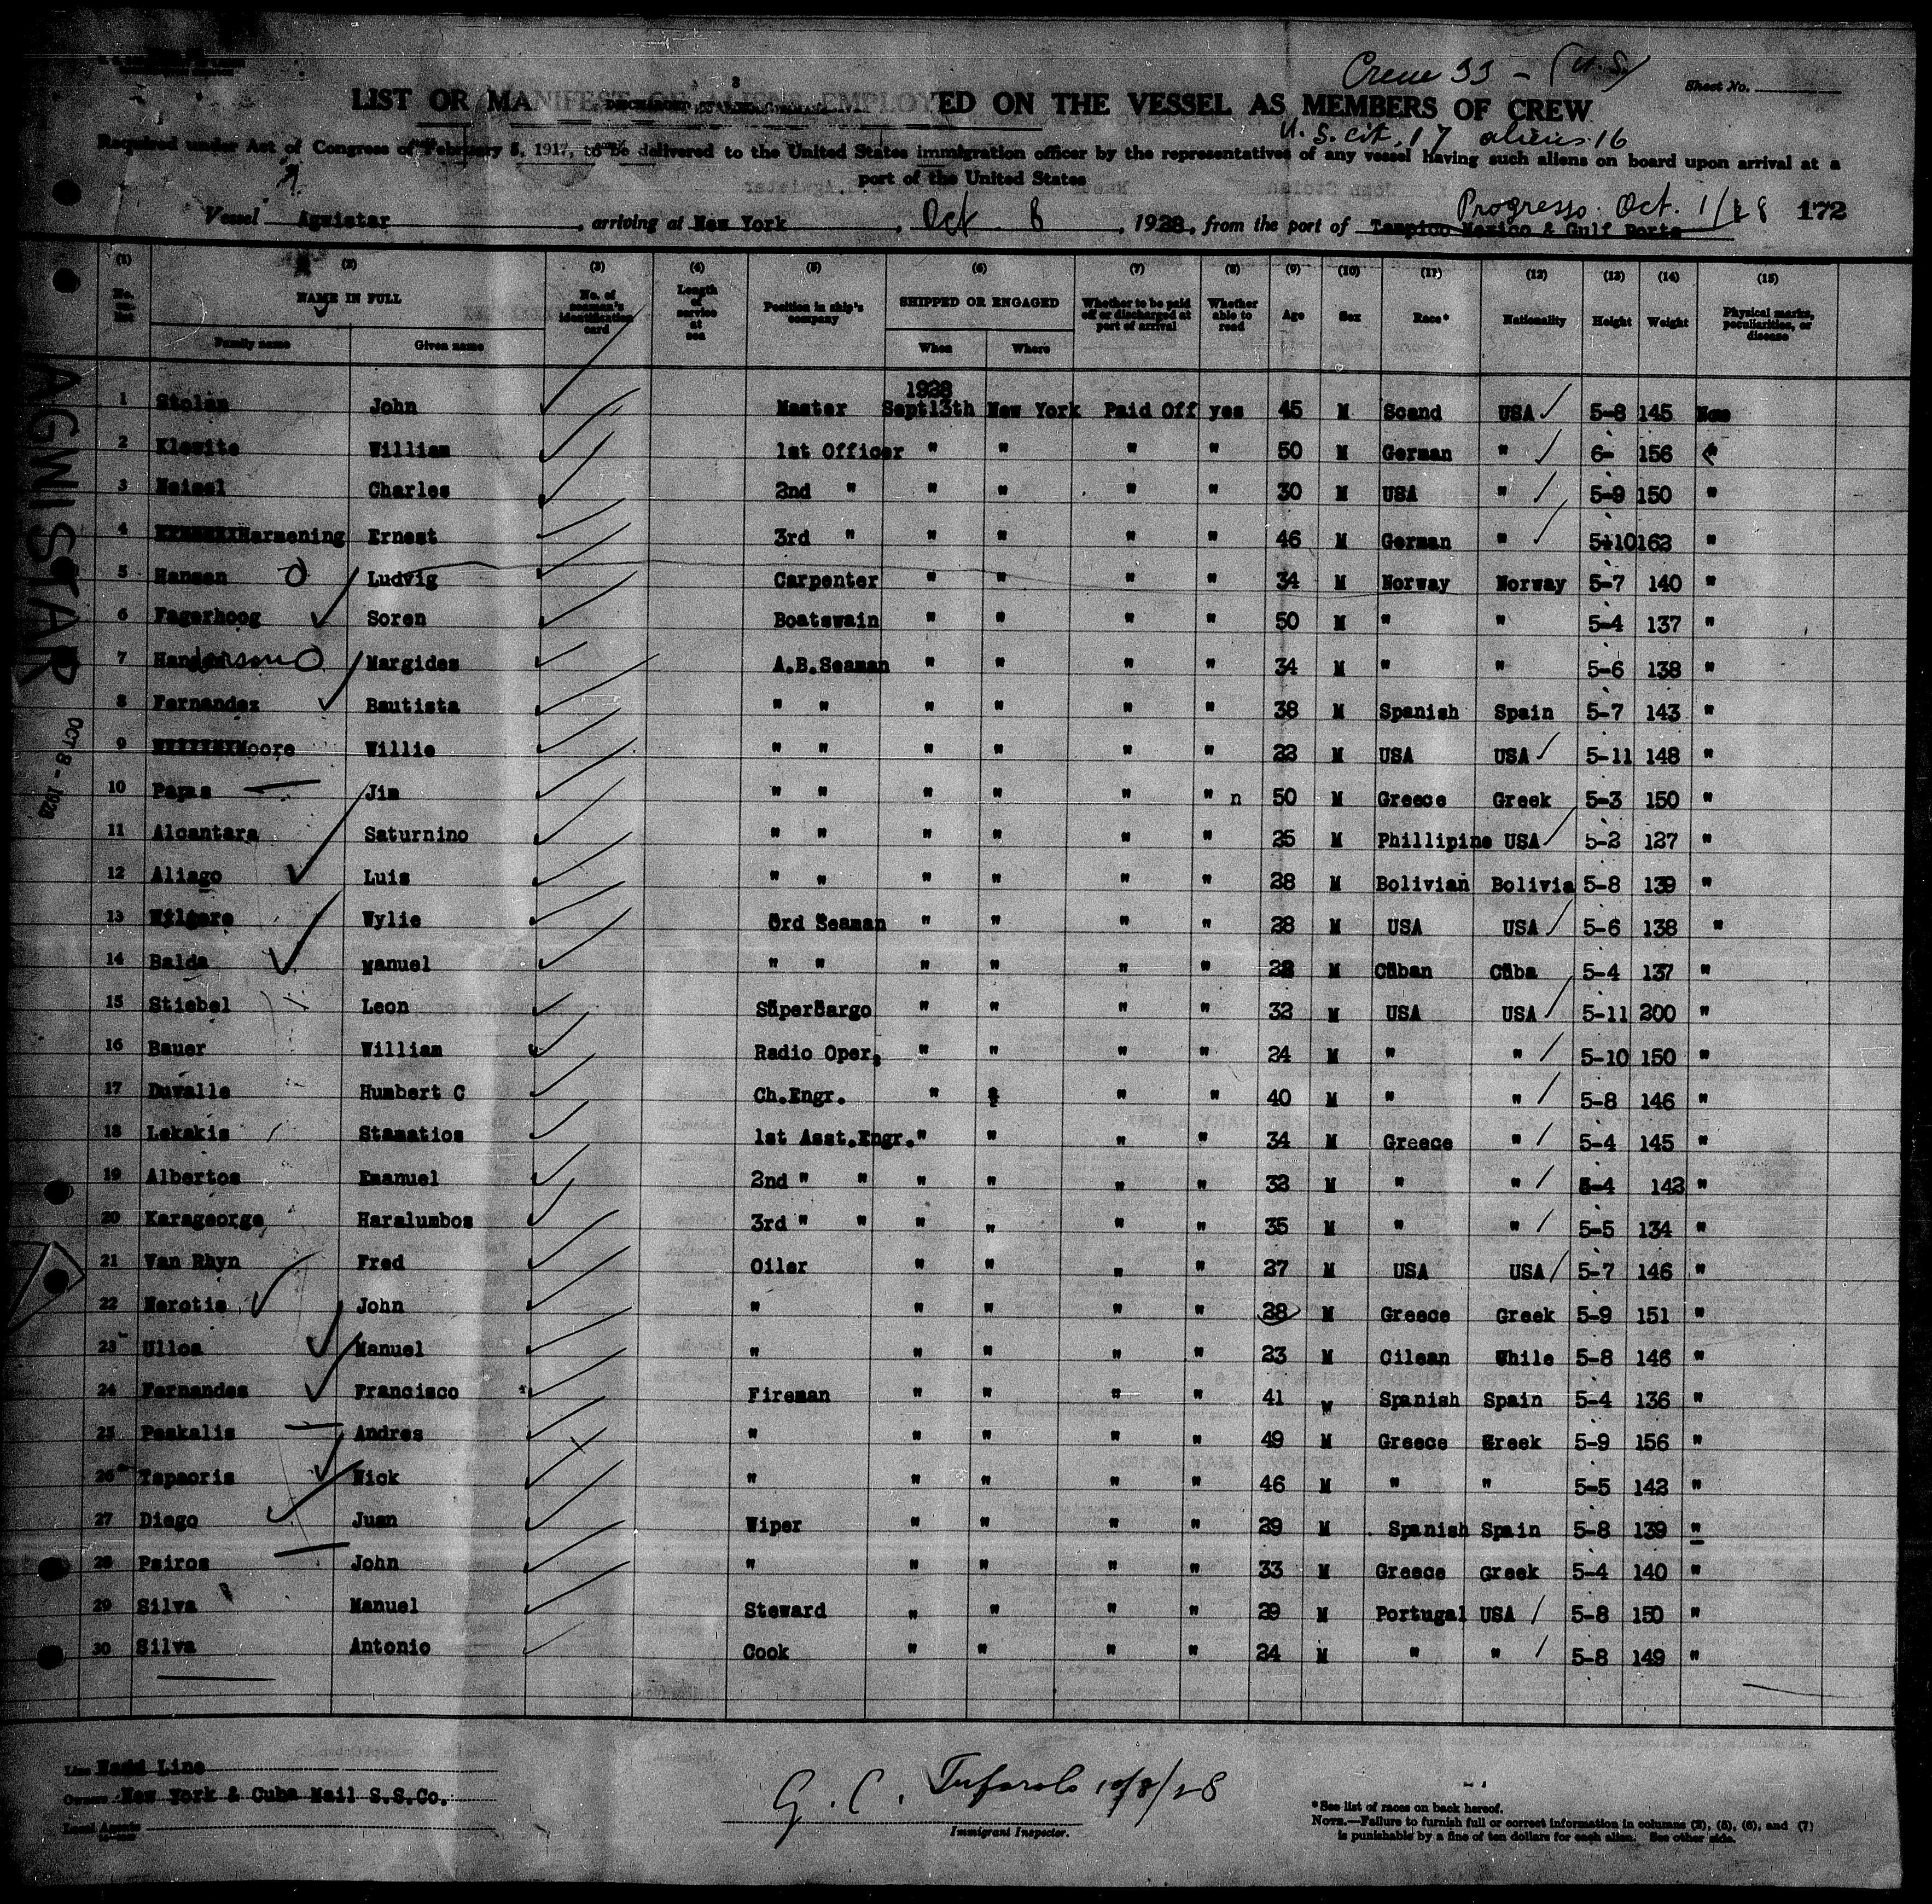 Crew 33 - (U.S)
Sheet No.
LIST OR MANIFEST OF ALIENS EMPLOYED ON THE VESSEL AS MEMBERS OF CREW
U.S. cit. 17 aliens 16
Required under Act of Congress of February 5, 1917, to be delivered to the United States immigration officer by the representatives of any vessel having such aliens on board upon arrival at a
port of the United States
Progresso. Oct. 1/28 172
Vessel Agwistar, arriving at New York, Oct 8, 1928, from the port of Tampico Mexico & Gulf Ports
(1) (2) (3) (4) (5) (6) (7) (8) (9) (10) (11) (12) (13) (14) (15)
No. on list NAME IN FULL No. of seaman's identification card Length of service at sea Position in ship's company SHIPPED OR ENGAGED Whether to be paid off or discharged at port of arrival Whether able to read Age Sex Race* Nationality Height Weight Physical marks, peculiarities, or disease
Family name Given name When Where
1928
1 Stolan John Master Sept13th New York Paid Off yes 45 M Scand USA 5-8 145 Non
2 Klewite William 1st Officer " " " " 50 M German " 6- 156 "
3 Meisel Charles 2nd " " " " " 30 M USA " 5-9 150 "
4 Harmening Ernest 3rd " " " " " 46 M German " 5-10 163 "
5 Hansen Ludvig Carpenter " " " " 34 M Norway Norway 5-7 140 "
6 Fagerhoog Soren Boatswain " " " " 50 M " " 5-4 137 "
7 Margides A.B.Seaman " " " " 34 M " " 5-6 138 "
8 Fernandez Bautista " " " " " " 38 M Spanish Spain 5-7 143 "
9 Moore Willie " " " " " " 23 M USA USA 5-11 148 "
10 Papas Jim " " " " " " n 50 M Greece Greek 5-3 150 "
11 Alcantara Saturnino " " " " " " 25 M Phillipine USA 5-2 127 "
12 Aliago Luis " " " " " " 28 M Bolivian Bolivia 5-8 139 "
13 Wilgare Wylie Ord Seaman " " " " 28 M USA USA 5-6 138 "
14 Balda Manuel " " " " " " 28 M Cuban Cuba 5-4 137 "
15 Stiebel Leon SuperCargo " " " " 32 M USA USA 5-11 200 "
16 Bauer William Radio Oper. " " " " 24 M " " 5-10 150 "
17 Duvalle Humbert C Ch.Engr. " " " " 40 M " " 5-8 146 "
18 Lekakis Stamatios 1st Asst.Engr. " " " " 34 M Greece " 5-4 145 "
19 Albertos Emanuel 2nd " " " " " " 32 M " " 5-4 142 "
20 Karageorge Haralumbos 3rd " " " " " " 35 M " " 5-5 134 "
21 Van Rhyn Fred Oiler " " " " 27 M USA USA 5-7 146 "
22 Nerotis John " " " " " 28 M Greece Greek 5-9 151 "
23 Ulloa Manuel " " " " " 23 M Cilean Chile 5-8 146 "
24 Fernandes Francisco Fireman " " " " 41 M Spanish Spain 5-4 136 "
25 Paskalis Andres " " " " " 49 M Greece Greek 5-9 156 "
26 Tapaoris Nick " " " " " 46 M " " 5-5 142 "
27 Diego Juan Wiper " " " " 29 M Spanish Spain 5-8 139 "
28 Psiros John " " " " " 33 M Greece Greek 5-4 140 "
29 Silva Manuel Steward " " " " 29 M Portugal USA 5-8 150 "
30 Silva Antonio Cook " " " " 24 M " " 5-8 149 "
AGWISTAR
OCT 8 - 1928
Line Ward Line
Owners New York & Cuba Mail S.S.Co.
Local Agents
G. C. 10/8/28
Immigrant Inspector.
*See list of races on back hereof.
NOTE.—Failure to furnish full or correct information in columns (2), (5), (6), and (7)
is punishable by a fine of ten dollars for each alien. See other side.